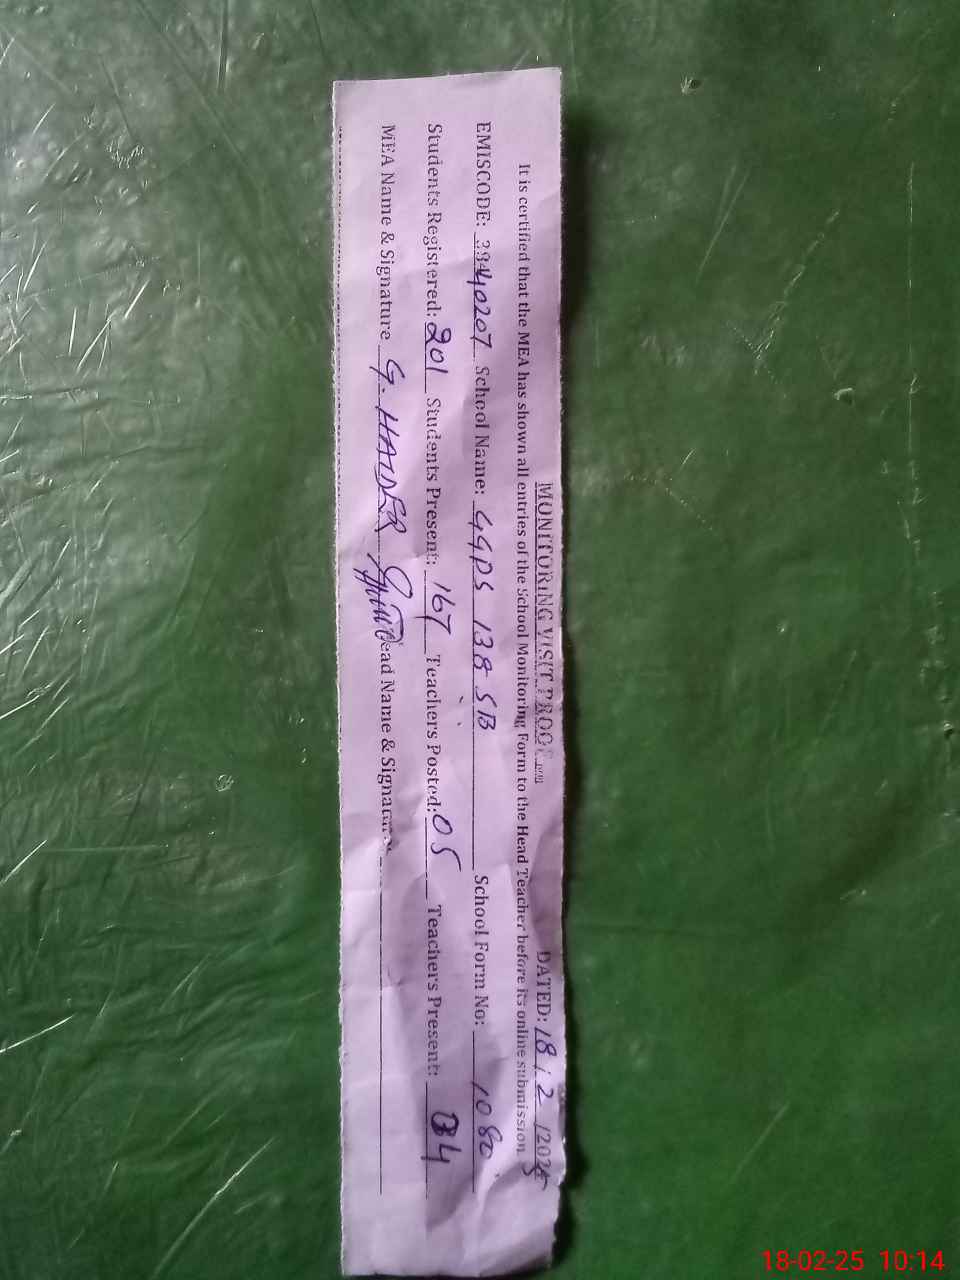 MONITORING VISIT PROOF DATED: 18/2/2025
It is certified that the MEA has shown all entries of the School Monitoring Form to the Head Teacher before its online submission.
EMISCODE: 39440207 School Name: GGPS 138 SB School Form No: 1080
Students Registered: 201 Students Present: 167 Teachers Posted: 05 Teachers Present: 04
MEA Name & Signature G. HAIDER Head Name & Signature
18-02-25 10:14